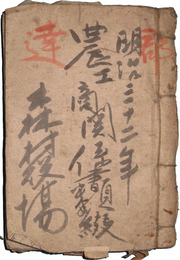 郡達
明治三十二年
農工商関係書類綴
森村役場